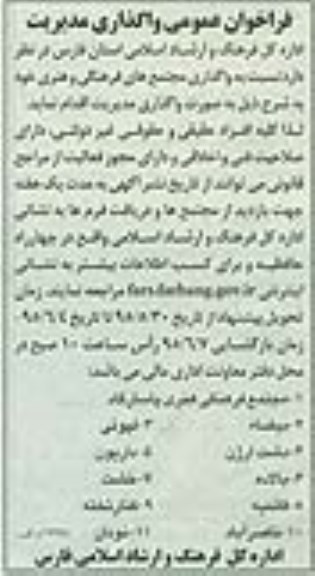 فراخوان عمومی واگذاری مدیریت
اداره کل فرهنگ و ارشاد اسلامی استان فارس در نظر
دارد نسبت به واگذاری مجتمع های فرهنگی و هنری خود
به شرح ذیل به صورت واگذاری مدیریت اقدام نماید.
لذا کلیه افراد حقیقی و حقوقی غیر دولتی، دارای
صلاحیت فنی و اخلاقی و دارای مجوز فعالیت از مراجع
قانونی می توانند از تاریخ نشر آگهی به مدت یک هفته
جهت بازدید از مجتمع ها و دریافت فرم ها به نشانی
اداره کل فرهنگ و ارشاد اسلامی واقع در چهارراه
حافظیه و برای کسب اطلاعات بیشتر به نشانی
اینترنتی fars.farhang.gov.ir مراجعه نمایند. زمان
تحویل پیشنهاد از تاریخ ۹۸/۵/۳۰ تا تاریخ ۹۸/۶/۴
زمان بازگشایی ۹۸/۶/۷ رأس ساعت ۱۰ صبح در
محل دفتر معاونت اداری مالی می باشد:
۱-مجتمع فرهنگی هنری پاسارگاد
۲-میمند ۳-
۴-دشت ارژن ۵-داریون
۶-بالاده ۷-خشت
۸-قائمیه ۹-کنارتخته
۱۰-ناصرآباد ۱۱-نودان
اداره کل فرهنگ و ارشاد اسلامی فارس